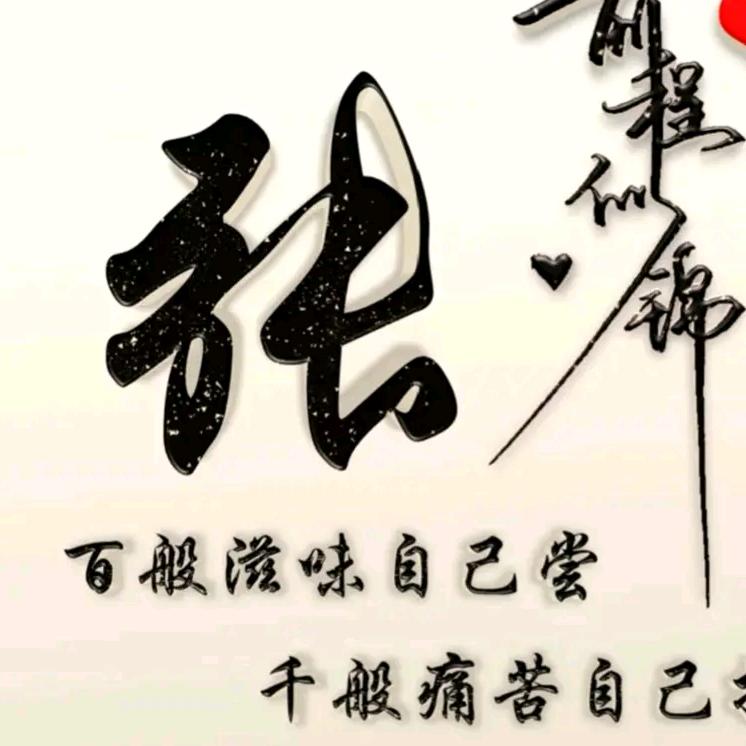 张
前程似锦
百般滋味自己尝
千般痛苦自己